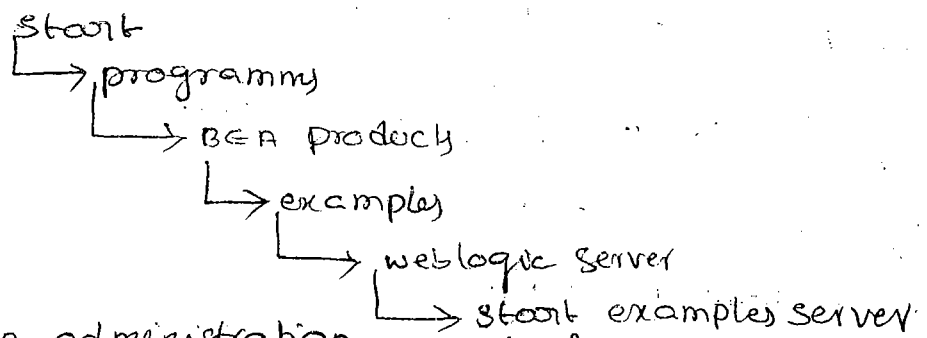 Start
programms
BEA products
examples
weblogic server
start examples server
administration